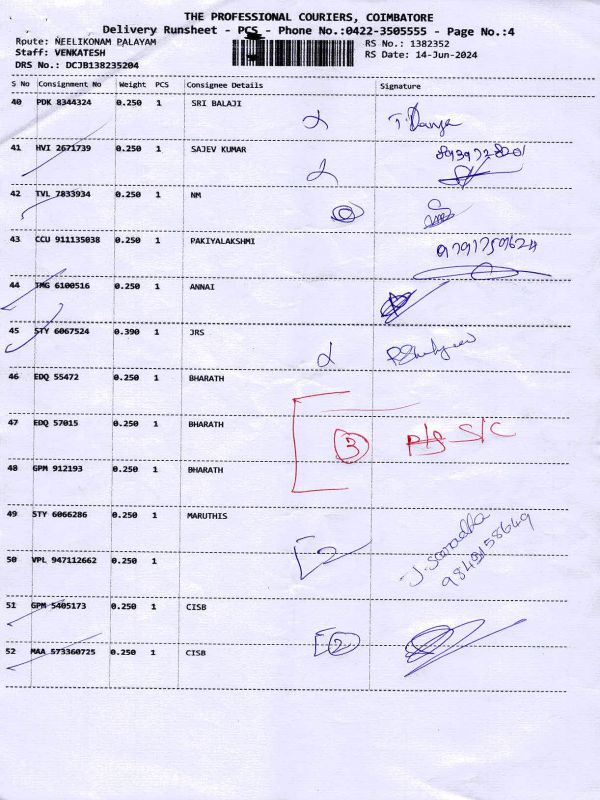 THE PROFESSIONAL COURIERS, COIMBATORE
Delivery Runsheet - PCS - Phone No.:0422-3505555 - Page No.:4
Route: NEELIKONAM PALAYAM RS No.: 1382352
Staff: VENKATESH RS Date: 14-Jun-2024
DRS No.: DCJB138235204
S No Consignment No Weight PCS Consignee Details Signature
40 PDK 8344324 0.250 1 SRI BALAJI
41 HVI 2671739 0.250 1 SAJEV KUMAR
42 TVL 7833934 0.250 1 NM
43 CCU 911135038 0.250 1 PAKIYALAKSHMI 9791759624
44 TMG 6100516 0.250 1 ANNAI
45 STY 6067524 0.390 1 JRS
46 EDQ 55472 0.250 1 BHARATH
47 EDQ 57015 0.250 1 BHARATH 3 S/C
48 GPM 912193 0.250 1 BHARATH
49 STY 6066286 0.250 1 MARUTHIS
2 J. Saradha
50 VPL 947112662 0.250 1
51 GPM 5405173 0.250 1 CISB
2
52 MAA 573360725 0.250 1 CISB